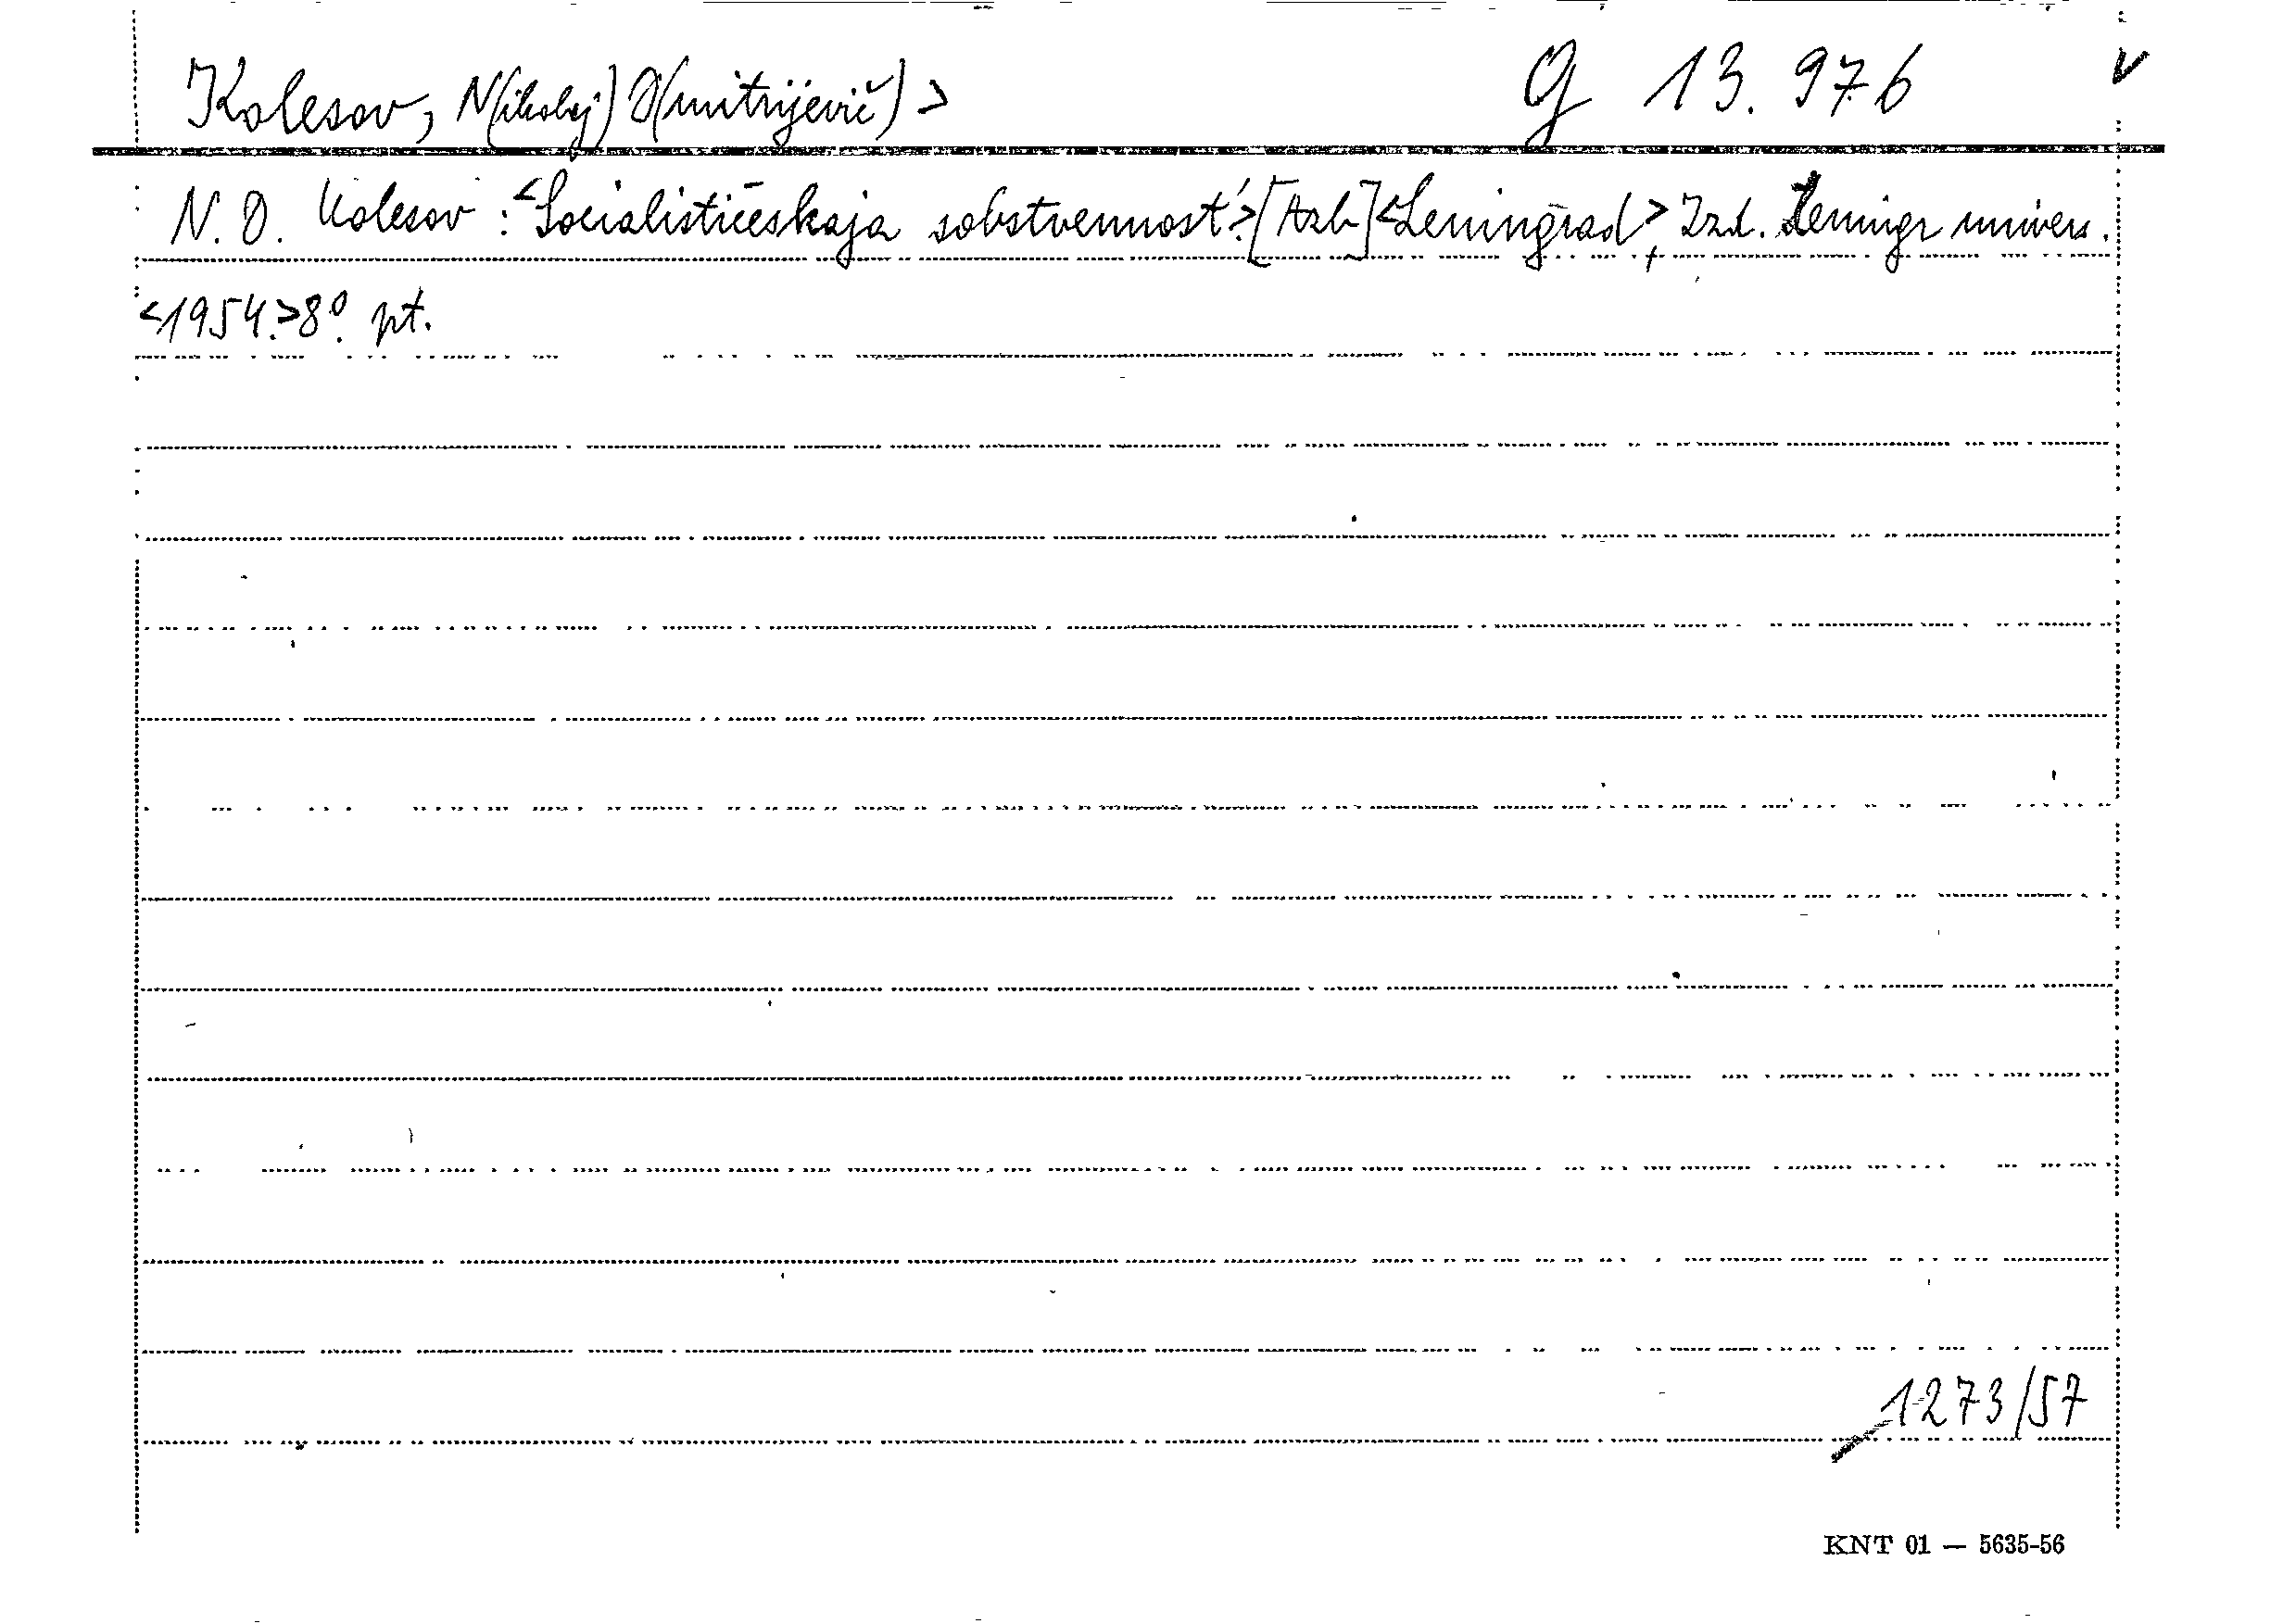 Kolesov, N(ikolaj) D(mitrijevič) > G 13.976 v
N. D. Kolesov : <Socialističeskaja sobstvennost'.> [Azb] <Leningrad>, Izd. Leningr univers.
<1954.> 8°. pt.
1273/57
KNT 01 — 5635-56